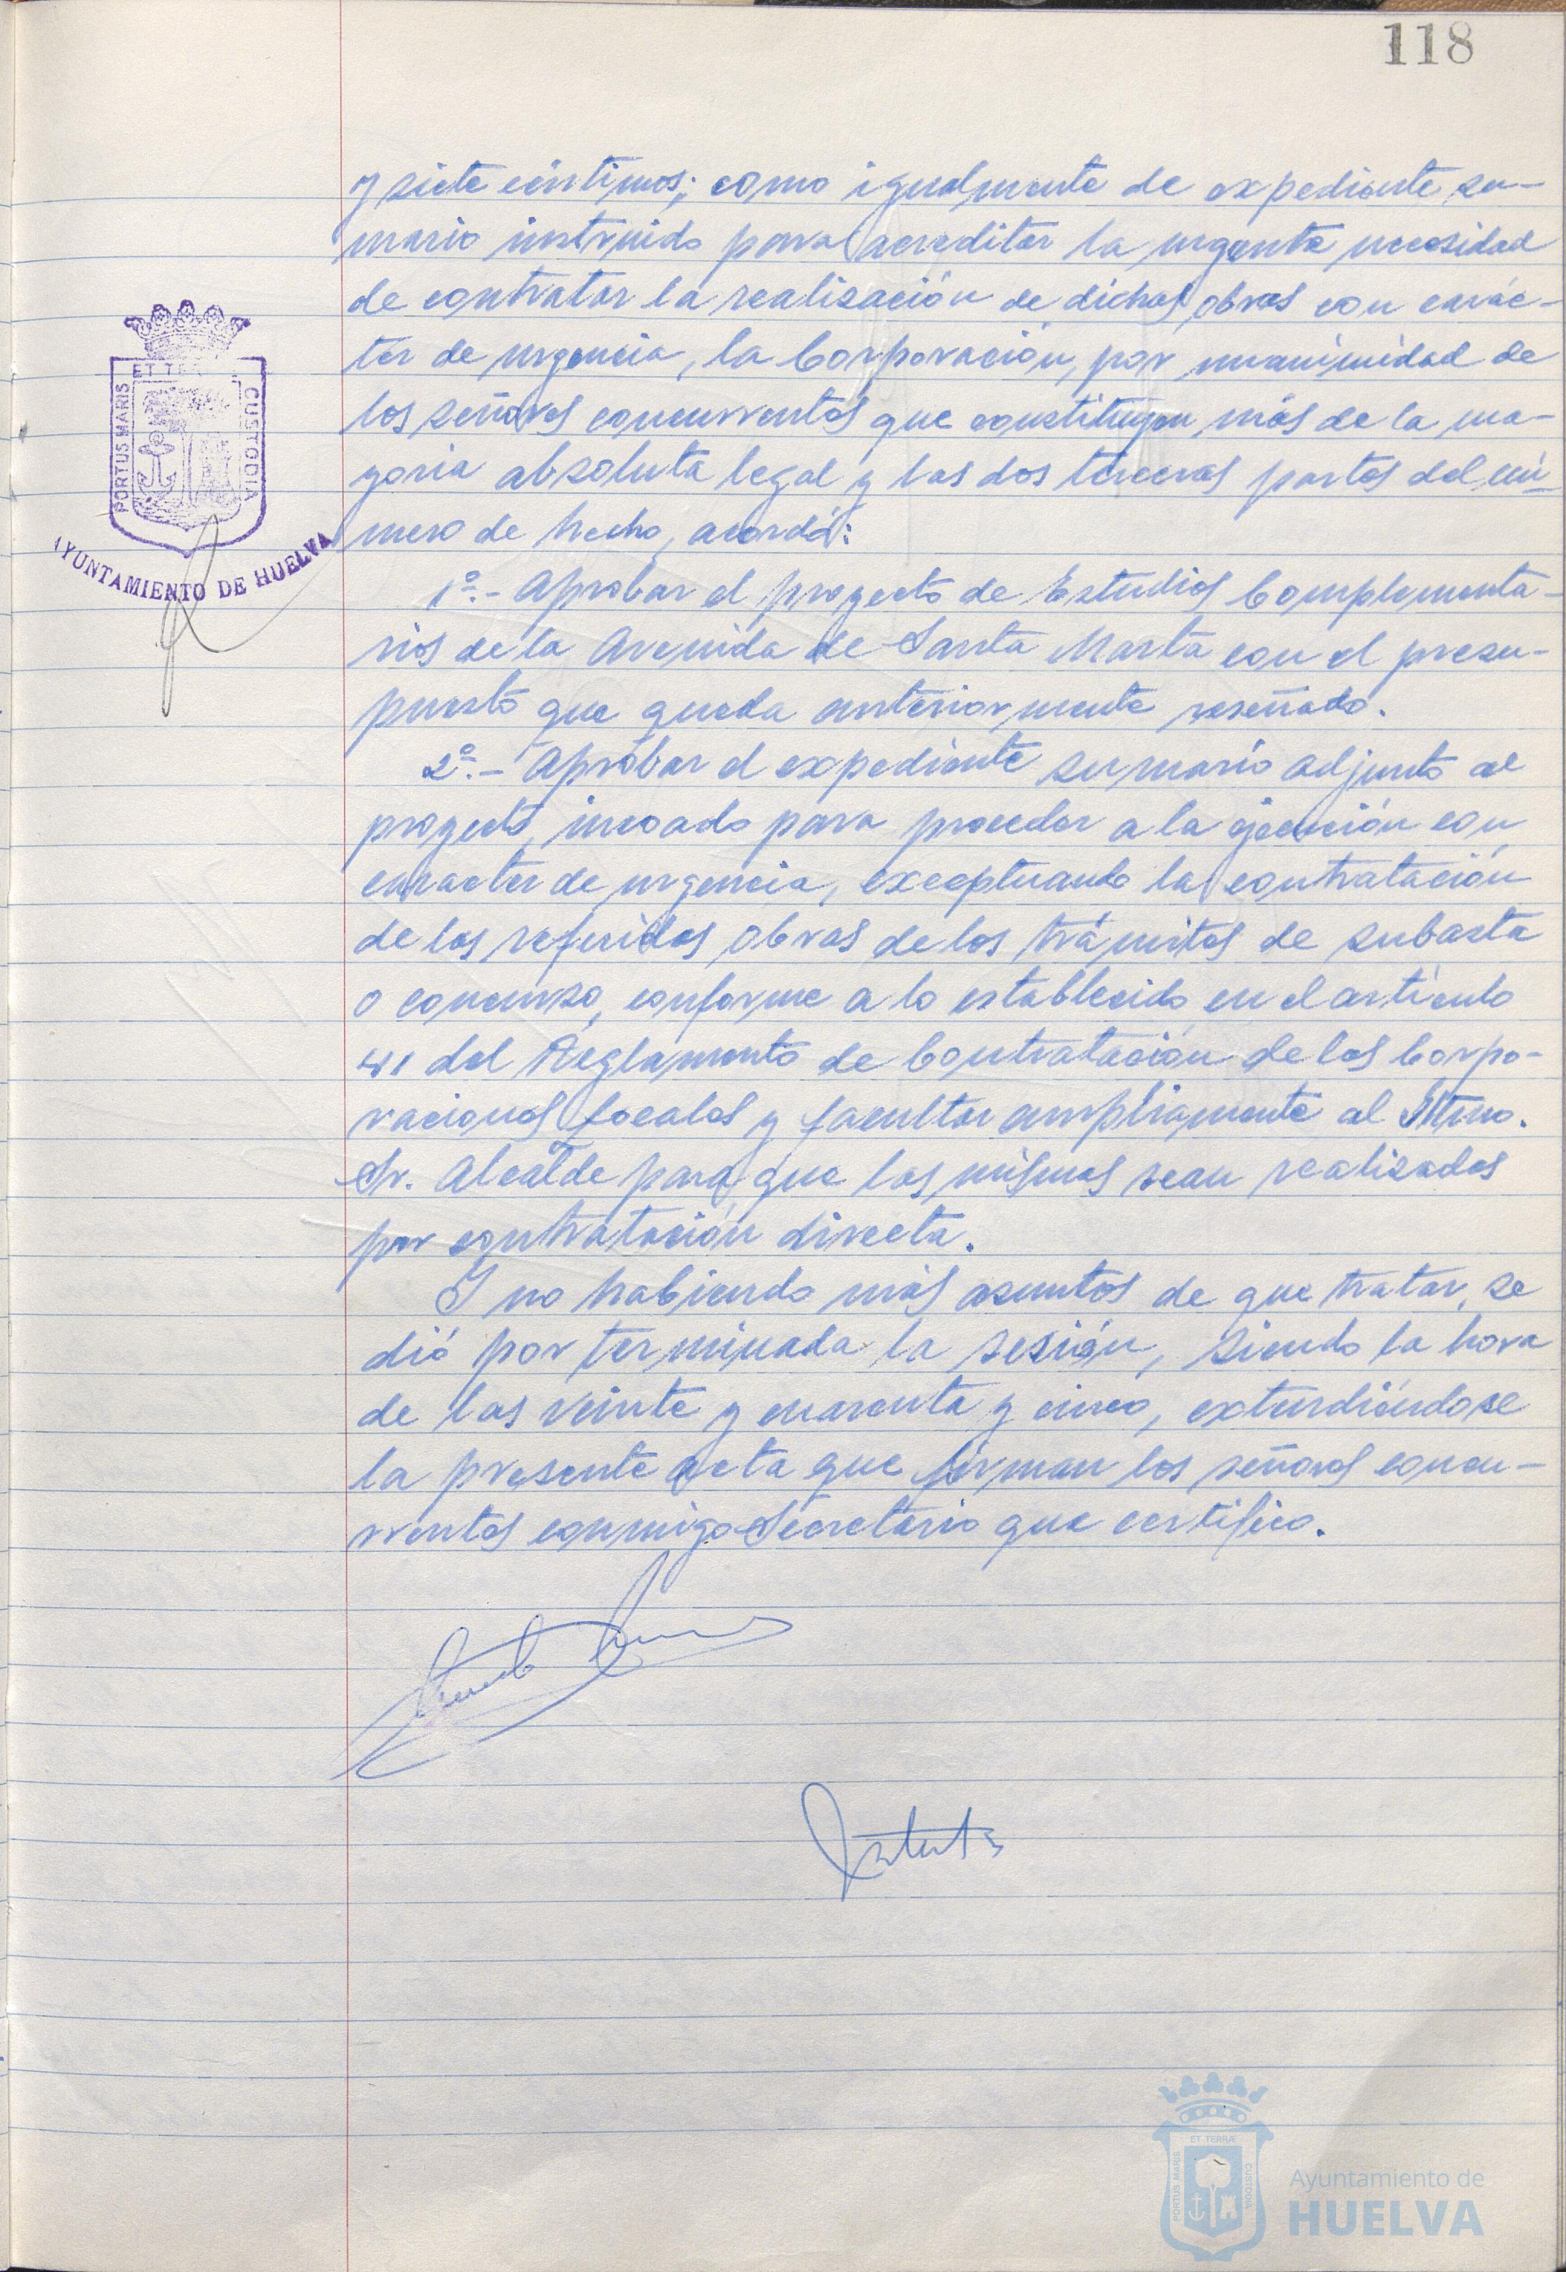 118
y siete céntimos; como igualmente de expediente su-
mario instruido para acreditar la urgente necesidad
de contratar la realización de dichas obras con carác-
ter de urgencia, la Corporación, por unanimidad de
los señores concurrentes que constituyen más de la ma-
yoria absoluta legal y las dos terceras partes del nú-
mero de hecho, acordó:
1º.- Aprobar el proyecto de Estudios Complementa-
rios de la Avenida de Santa Marta con el presu-
puesto que queda anteriormente reseñado.
2º.- Aprobar el expediente sumario adjunto al
proyecto, incoado para proceder a la ejecución con
caracter de urgencia, exceptuando la contratación
de las referidas obras de los trámites de subasta
o concurso, conforme a lo establecido en el artículo
41 del Reglamento de Contratación de las Corpo-
raciones Locales y facultar ampliamente al Iltmo.
Sr. Alcalde para que las mismas sean realizadas
por contratación directa.
Y no habiendo más asuntos de que tratar, se
dió por terminada la sesión, siendo la hora
de las veinte y cuarenta y cinco, extendiéndose
la presente acta que firman los señores concu-
rrentes conmigo Secretario que certifico.
ET TERRAE
PORTUS MARIS
CUSTODIA
AYUNTAMIENTO DE HUELVA
ET TERRAE
PORTUS MARIS
CUSTODIA
Ayuntamiento de
HUELVA